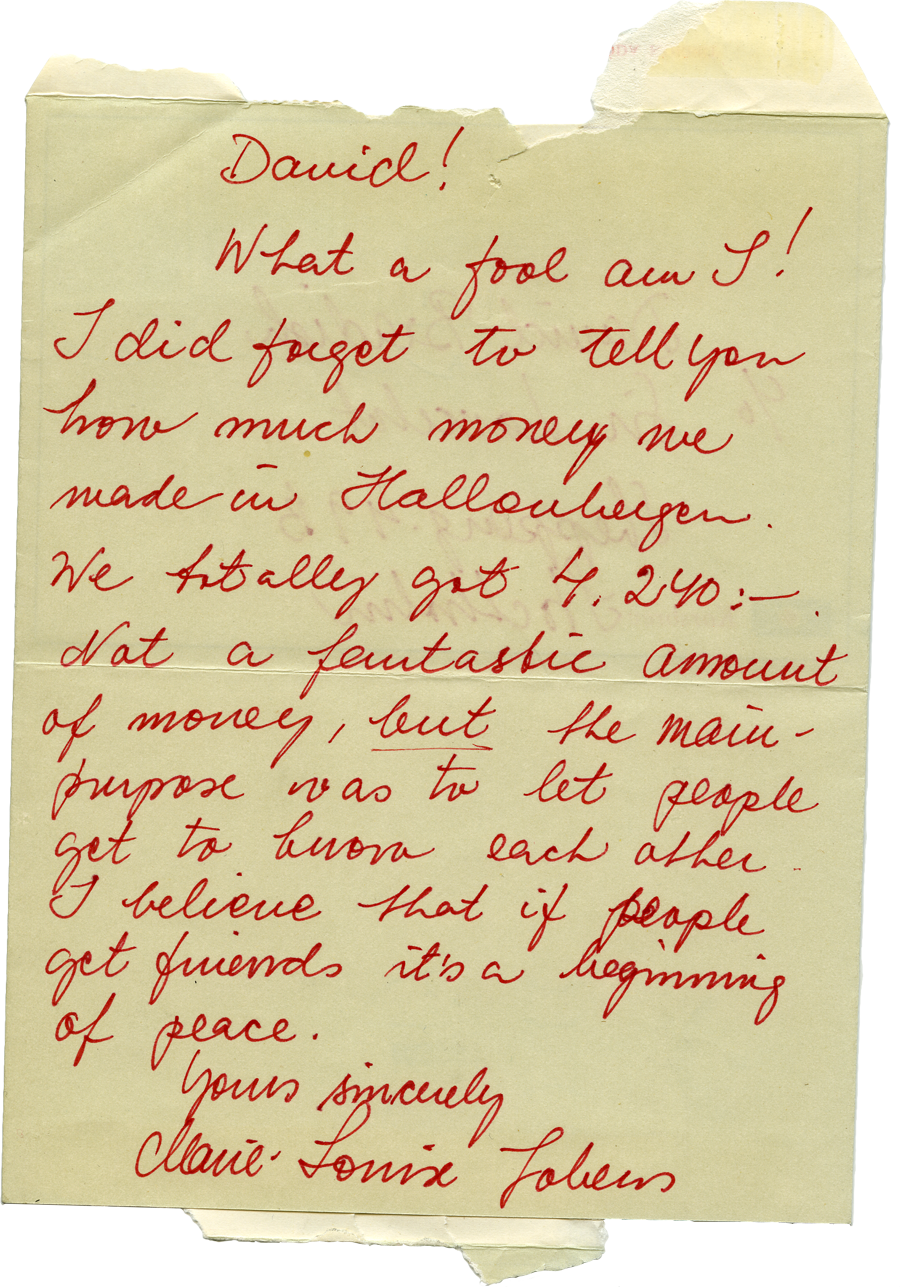 David!
What a fool am I!
I did forget to tell you
how much money we
made in Hallonbergen.
We totally got 4.240:-.
Not a fantastic amount
of money, but the main-
purpose was to let people
get to know each other.
I believe that if people
get friends it's a beginning
of peace.
Yours sincerely
Marie-Louise